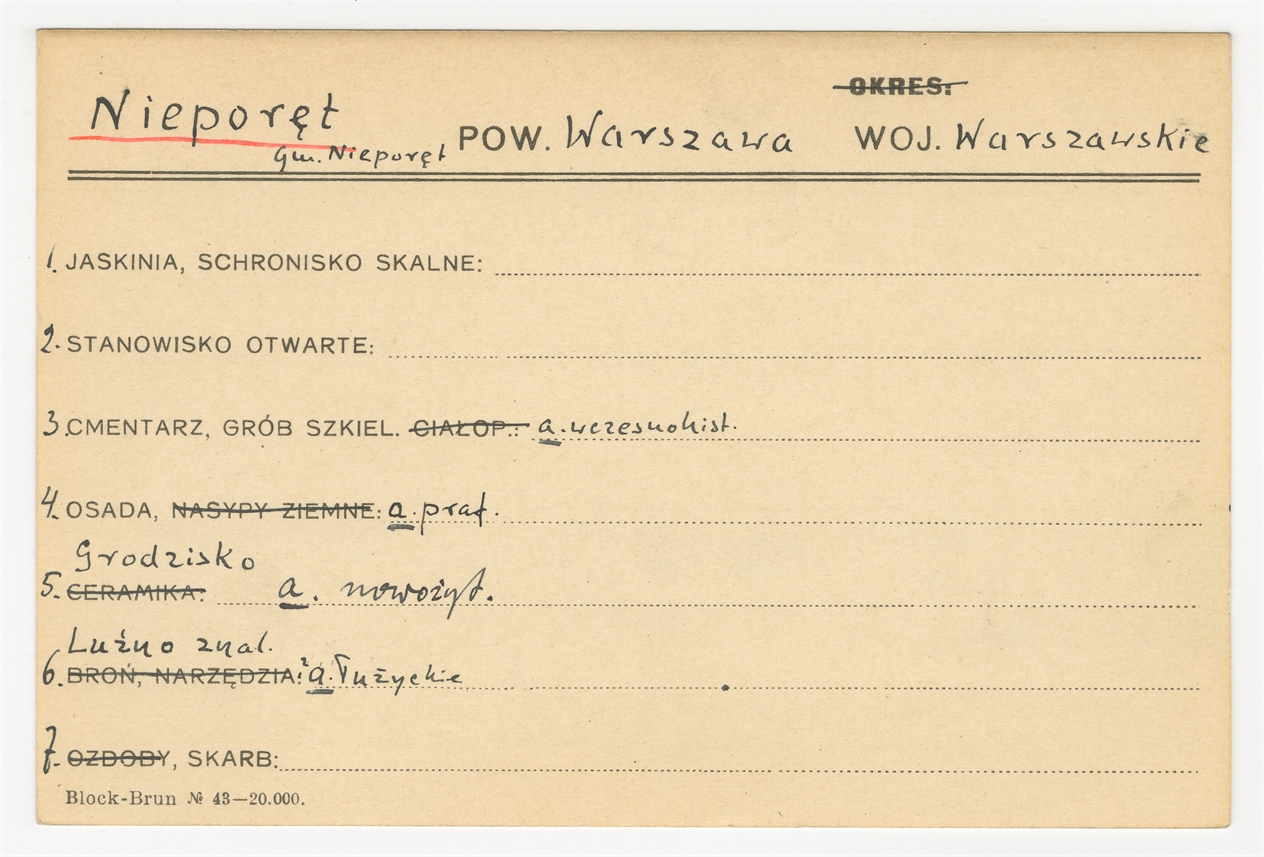 OKRES:
Nieporęt POW. Warszawa WOJ. Warszawskie
gm. Nieporęt
1. JASKINIA, SCHRONISKO SKALNE:
2. STANOWISKO OTWARTE:
3. CMENTARZ, GRÓB SZKIEL. CIAŁOP.: a. wczesnohist.
4. OSADA, NASYPY ZIEMNE: a. praf.
Grodzisko
5. CERAMIKA: a. nowożyt.
Luźno znal.
6. BROŃ, NARZĘDZIA: ? a. Łużyckie
7. OZDOBY, SKARB:
Block-Brun № 43—20.000.